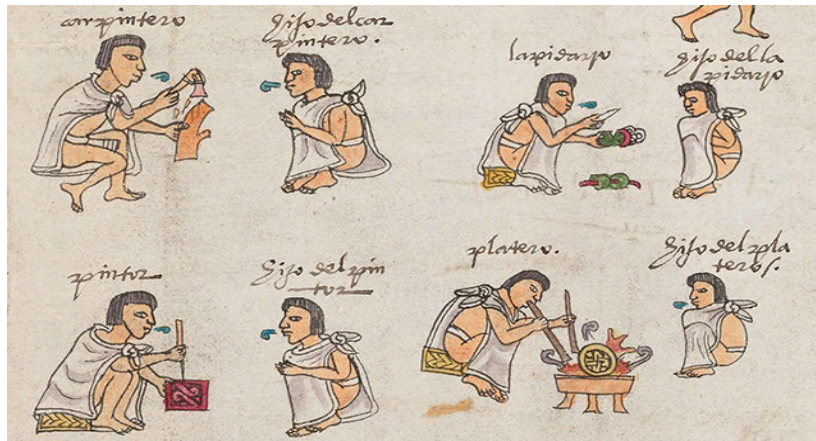 carpintero
hijo del car
pintero.
lapidario
hijo del la
pidario
pintor
hijo del pin
tor
platero.
hijo del pla
teros.